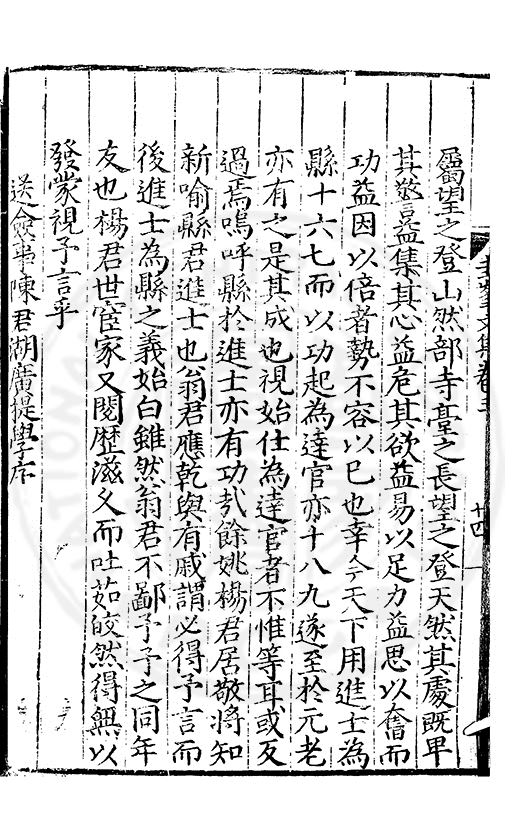 屬望之登山然部寺臺之長望之登天然其處既卑
其警益集其心益危其欲益易以足力益思以奮而
功益因以倍者勢不容以已也幸今天下用進士為
縣十六七而以功起為達官亦十八九遂至於元老
亦有之是其成也視始仕為達官者不惟等耳或反
過焉嗚呼縣於進士亦有功哉餘姚楊君居敬將知
新喻縣君進士也翁君應乾與有戚謂必得予言而
後進士為縣之義始白雖然翁君不鄙予予之同年
友也楊君世宦家又閱歷滋久而吐茹皎然得無以
發蒙視予言乎
送僉事陳君湖廣提學序
文集卷三
廿四